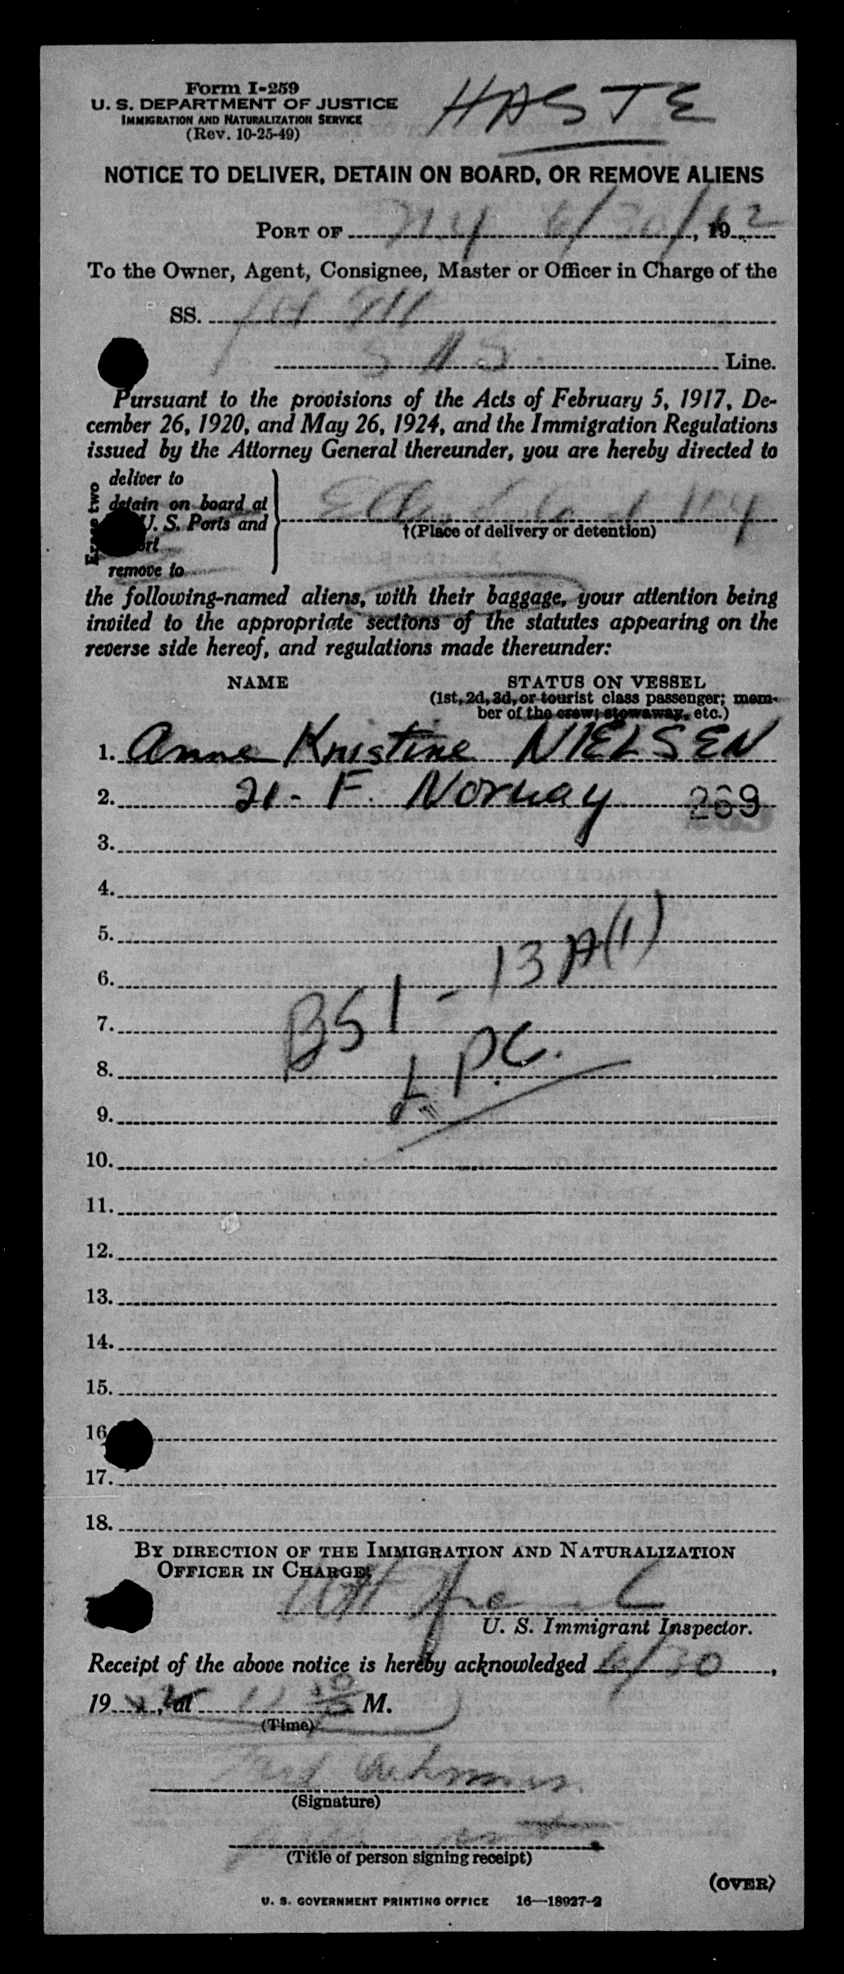 Form I-259
U. S. DEPARTMENT OF JUSTICE
IMMIGRATION AND NATURALIZATION SERVICE
(Rev. 10-25-49)
HASTE
NOTICE TO DELIVER, DETAIN ON BOARD, OR REMOVE ALIENS
PORT OF N.Y 6/30/, 1952
To the Owner, Agent, Consignee, Master or Officer in Charge of the
SS.
Line.
Pursuant to the provisions of the Acts of February 5, 1917, De-
cember 26, 1920, and May 26, 1924, and the Immigration Regulations
issued by the Attorney General thereunder, you are hereby directed to
deliver to
detain on board at
U. S. Ports and
remove to
Erase two
Ellis Island NY
†(Place of delivery or detention)
the following-named aliens, with their baggage, your attention being
invited to the appropriate sections of the statutes appearing on the
reverse side hereof, and regulations made thereunder:
NAME STATUS ON VESSEL
(1st, 2d, 3d, or tourist class passenger; mem-
ber of the crew; stowaway, etc.)
1. Anne Kristine NIELSEN
2. 21 - F. Norway 269
3.
4.
5.
6.
7.
8.
9.
BSI - 13A(1)
L.P.C.
10.
11.
12.
13.
14.
15.
16
17.
18.
BY DIRECTION OF THE IMMIGRATION AND NATURALIZATION
OFFICER IN CHARGE,
U. S. Immigrant Inspector.
Receipt of the above notice is hereby acknowledged 6/30,
19, at M.
(Time)
(Signature)
(Title of person signing receipt)
(OVER)
U. S. GOVERNMENT PRINTING OFFICE 16—18927-2